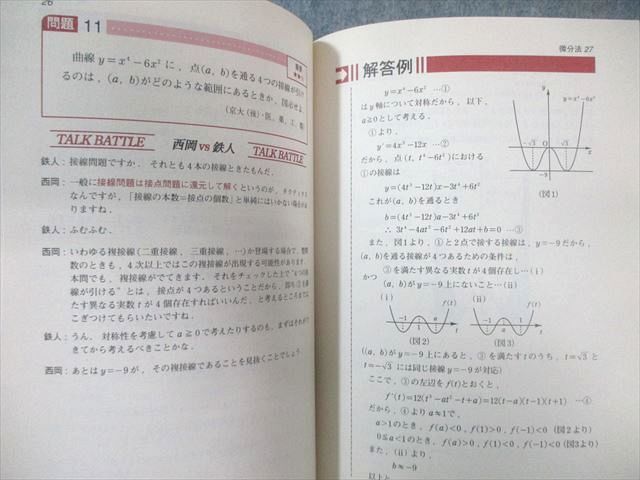 26
問題 11
曲線 y=x⁴-6x² に，点(a, b)を通る4つの接線が引け
るのは，(a, b)がどのような範囲にあるときか，図示せよ．
(京大(後)・医，薬，工，
TALK BATTLE 西岡 vs 鉄人 TALK BATTLE
鉄人：接線問題ですか．それとも4本の接線ときたもんだ．
西岡：一般に接線問題は接点問題に還元して解くというのが，タクティクス
なんですが，「接線の本数＝接点の個数」と単純にはいかない場合があ
りますね．
鉄人：ふむふむ．
西岡：いわゆる複接線(二重接線，三重接線，…)が登場する場合で，整関
数のときも，4次以上ではこの複接線が出現する可能性があります．
本問でも，複接線がでてきます．それをチェックした上で“4つの接
線が引ける”とは，接点が4つあるということだから，即ち③を満
たす異なる実数 t が4個存在すればいいんだ，と考えるところまで
こぎつけてもらいたいですね．
鉄人：うん．対称性を考慮して a≧0 で考えたりするのも，まずはそれがで
きてから考えるべきことかな．
西岡：あとは y=-9 が，その複接線であることを見抜くことでしょう．
微分法 27
解答例
y=x⁴-6x² …①
は y 軸について対称だから，以下，
a≧0 として考える．
①より，
y'=4x³-12x …②
だから，点(t, t⁴-6t²)における
①の接線は
y=(4t³-12t)x-3t⁴+6t²
これが(a, b)を通るとき
b=(4t³-12t)a-3t⁴+6t²
∴ 3t⁴-4at³-6t²+12at+b=0 …③
y
y=x⁴-6x²
-√3 O √3 x
-9
(図1)
また，図1より，①と2点で接する接線は，y=-9 だから，
(a, b)を通る接線が4つあるための条件は，
③を満たす異なる実数 t が4個存在し…(i)
かつ
(a, b)が y=-9 上にないこと…(ii)
(i) f(t) (ii) f(t)
-1 1 a t -1 a 1 t
(図2) (図3)
((a, b)が y=-9 上にあると，③を満たす t のうち，t=√3 と
t=-√3 には同じ接線 y=-9 が対応)
ここで，③の左辺を f(t)とおくと，
f'(t)=12(t³-at²-t+a)=12(t-a)(t-1)(t+1) …④
だから，④より a≠1 で，
a>1 のとき，f(a)<0，f(1)>0，f(-1)<0 (図2より)
0≦a<1 のとき，f(a)>0，f(1)<0，f(-1)<0 (図3より)
また，(ii)より，
b≠-9
以上と